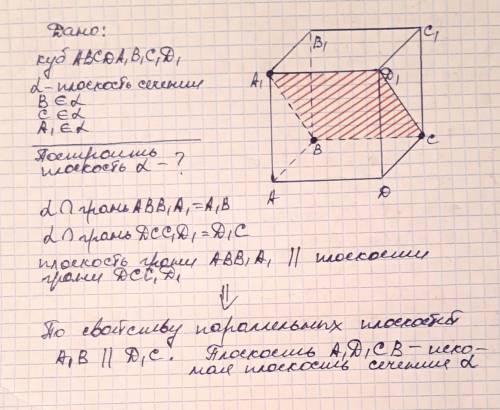 Дано:
куб ABCDA₁B₁C₁D₁
α - плоскость сечения
B ∈ α
C ∈ α
A₁ ∈ α
Построить
плоскость α - ?
B₁
C₁
A₁
D₁
B
C
A
D
α ∩ грань ABB₁A₁ = A₁B
α ∩ грань DCC₁D₁ = D₁C
плоскость грани ABB₁A₁ || плоскости
грани DCC₁D₁
⇓
По свойству параллельных плоскостей
A₁B || D₁C. Плоскость A₁D₁CB - иско-
мая плоскость сечения α